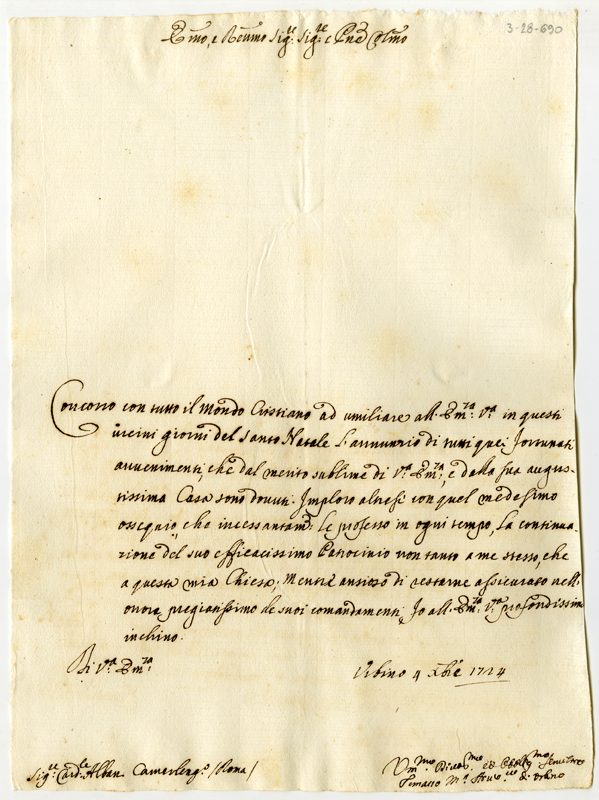 3-28-690
Emo, e Reumo Sig:re Sig:re e Pne Colmo
Concorro con tutto il Mondo Cristiano ad umiliare all'Em:za V:a in questi
vicini giorni del Santo Natale l'annunzio di tutti quei fortunati
avvenimenti, che dal merito sublime di V:a Em:za, e dalla sua augus-
tissima Casa sono dovuti. Imploro altresì con quel medesimo
ossequio, che incessantem:te le professo in ogni tempo, la continua-
zione del suo efficacissimo Patrocinio non tanto a me stesso, che
a questa mia Chiesa; Mentre ansioso di restarne assicurato nell'
onore pregiatissimo de suoi comandamenti, Io all'Em:za V:a profondissim
inchino.
Di V:a Em:za
Urbino 4 Xbre 1724
Sig:re Card:le Alban Camerleng:o /Roma/
Vm:mo Divot:mo ed Obblig:mo Servitore
Tomasso M:a Arciv:vo d'Urbino